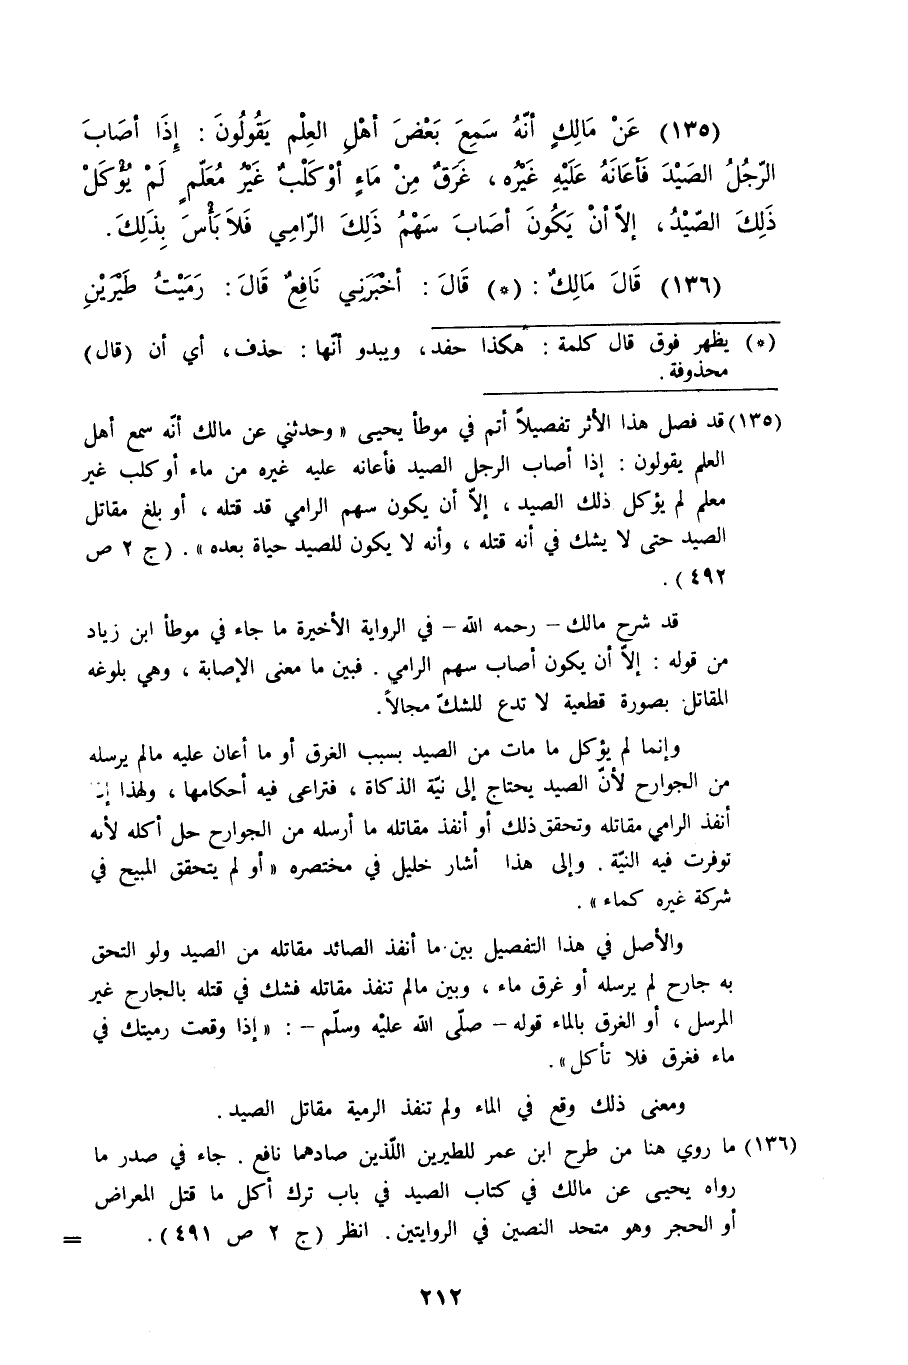 (١٣٥) عَنْ مَالِكٍ أنَّهُ سَمِعَ بَعْضَ أهْلِ العِلْمِ يَقُولُونَ : إِذَا أصَابَ
الرّجُلُ الصَيْدَ فَأعَانَهُ عَلَيْهِ غَيْرُه ، غَرَقٌ مِنْ مَاءٍ أوْ كَلْبٌ غَيْرُ مُعَلّمٍ لَمْ يُؤْكَلْ
ذَلِكَ الصّيْدُ ، إلاّ أنْ يَكُونَ أصَابَ سَهْمُ ذَلِكَ الرّامِي فَلاَ بَأْسَ بِذَلِكَ .
(١٣٦) قَالَ مَالِكٌ : (*) قَالَ : أخْبَرَنِي نَافِعٌ قَالَ : رَمَيْتُ طَيْرَيْنِ
(*) يظهر فوق قال كلمة : هكذا حفد ، ويبدو أنّها : حذف ، أي أن (قال)
محذوفة .
(١٣٥) قد فصل هذا الأثر تفصيلاً أتم في موطأ يحيى « وحدثني عن مالك أنه سمع أهل
العلم يقولون : إذا أصاب الرجل الصيد فأعانه عليه غيره من ماء أو كلب غير
معلم لم يؤكل ذلك الصيد ، إلاّ أن يكون سهم الرامي قد قتله ، أو بلغ مقاتل
الصيد حتى لا يشك في أنه قتله ، وأنه لا يكون للصيد حياة بعده » . (ج ٢ ص
٤٩٢) .
قد شرح مالك – رحمه الله – في الرواية الأخيرة ما جاء في موطأ ابن زياد
من قوله : إلاّ أن يكون أصاب سهم الرامي . فبين ما معنى الإصابة ، وهي بلوغه
المقاتل بصورة قطعية لا تدع للشكّ مجالاً .
وإنما لم يؤكل ما مات من الصيد بسبب الغرق أو ما أعان عليه مالم يرسله
من الجوارح لأنّ الصيد يحتاج إلى نيّة الذكاة ، فتراعى فيه أحكامها ، ولهذا
أنفذ الرامي مقاتله وتحقق ذلك أو أنفذ مقاتله ما أرسله من الجوارح حل أكله لأنه
توفرت فيه النيّة . وإلى هذا أشار خليل في مختصره « أو لم يتحقق المبيح في
شركة غيره كماء » .
والأصل في هذا التفصيل بين ما أنفذ الصائد مقاتله من الصيد ولو التحق
به جارح لم يرسله أو غرق ماء ، وبين مالم تنفذ مقاتله فشك في قتله بالجارح غير
المرسل ، أو الغرق بالماء قوله – صلّى الله عليْه وسلّم – : « إذا وقعت رميتك في
ماء فغرق فلا تأكل » .
ومعنى ذلك وقع في الماء ولم تنفذ الرمية مقاتل الصيد .
(١٣٦) ما روي هنا من طرح ابن عمر للطيرين اللّذين صادهما نافع . جاء في صدر ما
رواه يحيى عن مالك في كتاب الصيد في باب ترك أكل ما قتل المعراض
أو الحجر وهو متحد النصين في الروايتين . انظر (ج ٢ ص ٤٩١) . =
٢١٢